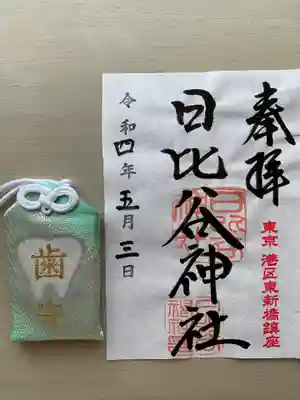 奉拝
東京 港区東新橋鎮座
日比谷神社
令和四年五月三日
歯守